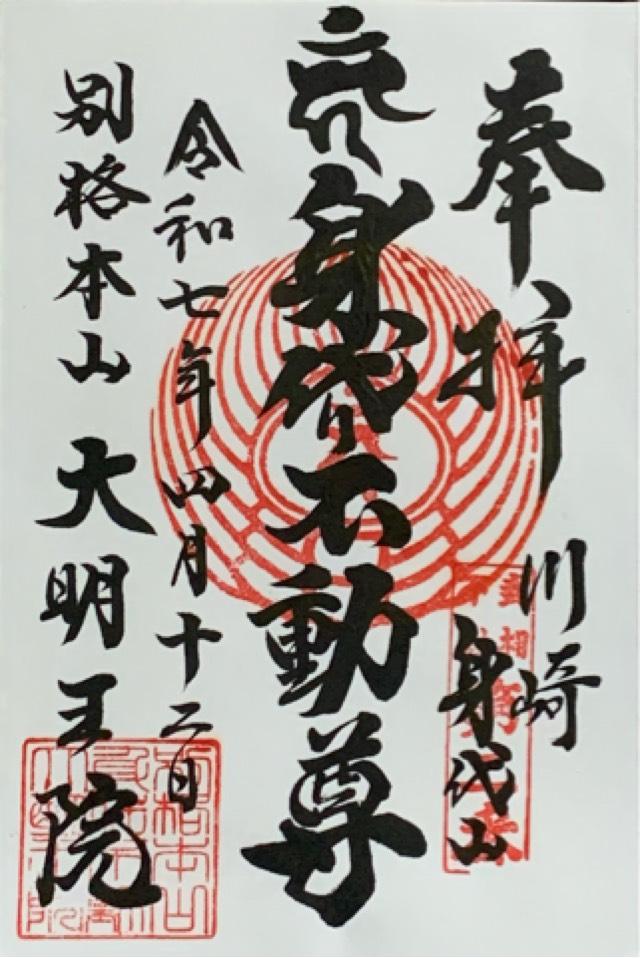 奉拝
川崎
身代山
身代り不動尊
令和七年四月十二日
別格本山 大明王院